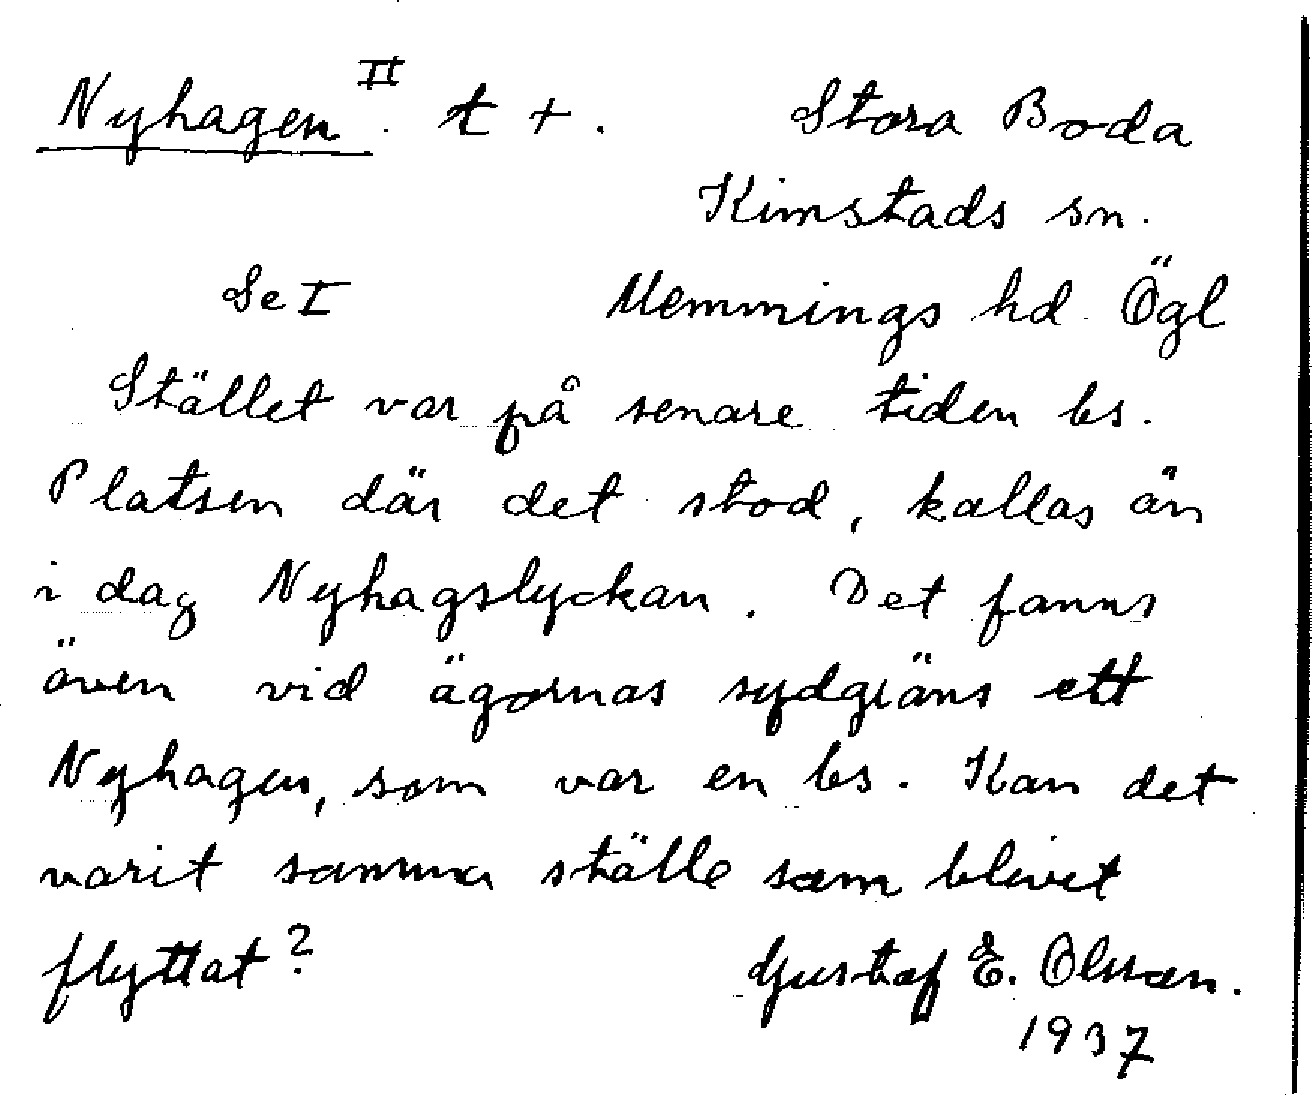 Nyhagen II. t +. Stora Boda
Kimstads sn.
Se I Memmings hd Ögl
Stället var på senare tiden bs.
Platsen där det stod, kallas än
i dag Nyhagslyckan. Det fanns
även vid ägornas sydgräns ett
Nyhagen, som var en bs. Kan det
varit samma ställe som blivit
flyttat?
Gustaf E. Olsson.
1937